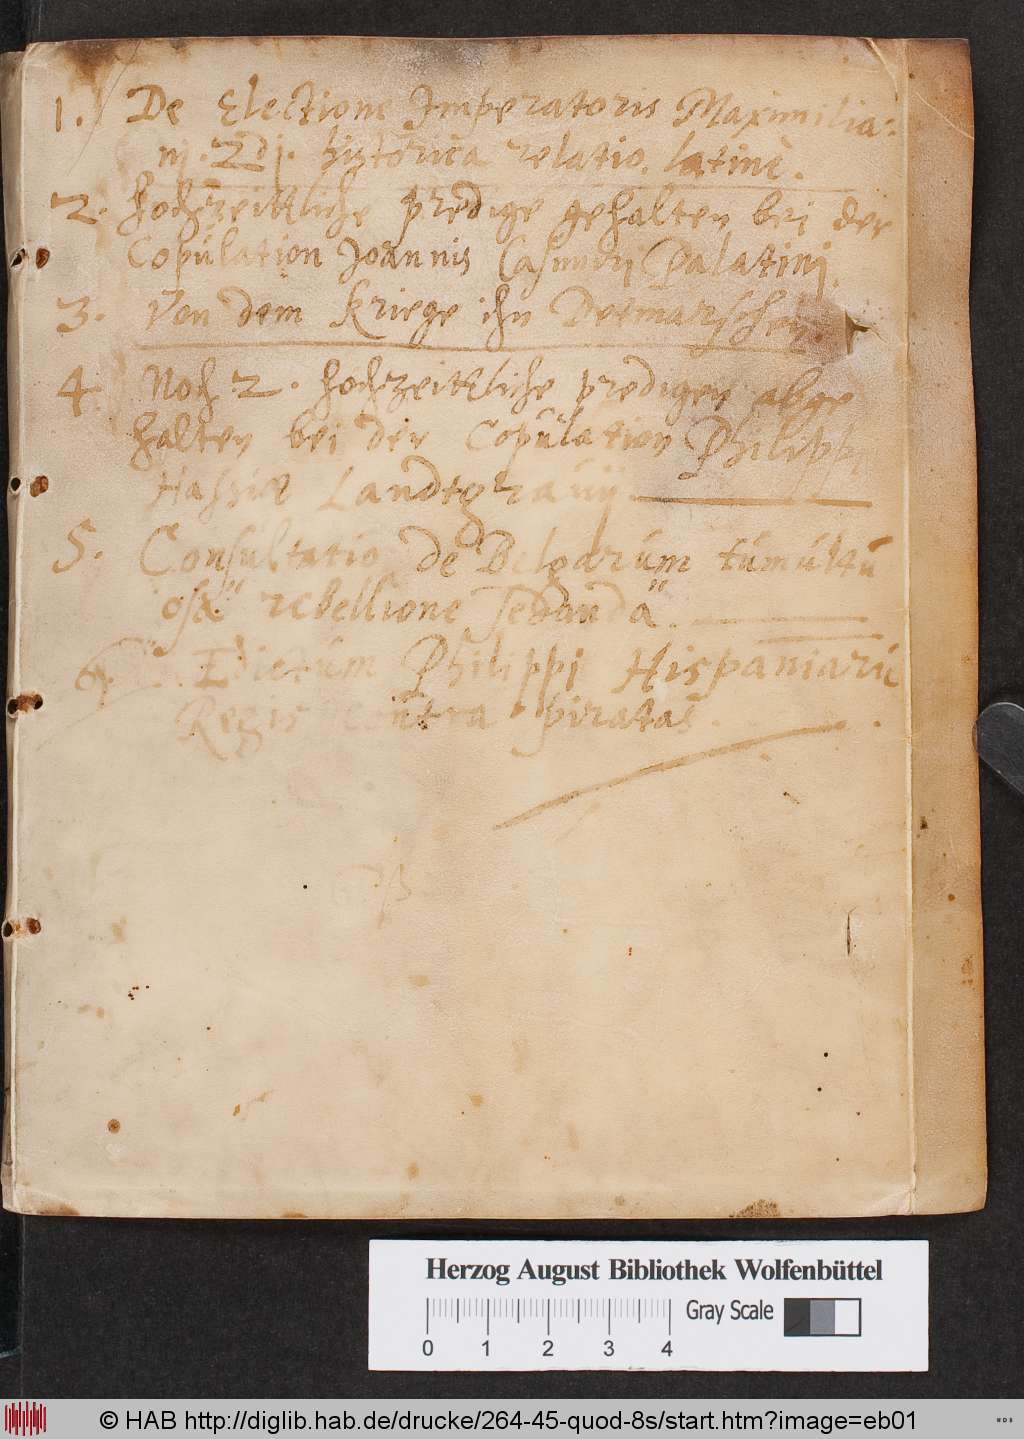 1. De Electione Imperatoris Maximilia-
nj. 2dj. historica relatio. latinè.
2. Hochzeittliche predige gehalten bei der
Copulation Joannis Casimirj Palatinj.
3. Von dem Kriege ihn Detmarschen
4. Noch 2. hochzeittliche predigen abge
halten bei der Copulation Philippi
Hassiæ Landtgrauij.
5. Consultatio de Belgarum tumultu
osa rebellione sedanda.
6. Edictum Philippi Hispaniarū
Regis contra piratas.
Herzog August Bibliothek Wolfenbüttel
Gray Scale
0 1 2 3 4
© HAB http://diglib.hab.de/drucke/264-45-quod-8s/start.htm?image=eb01